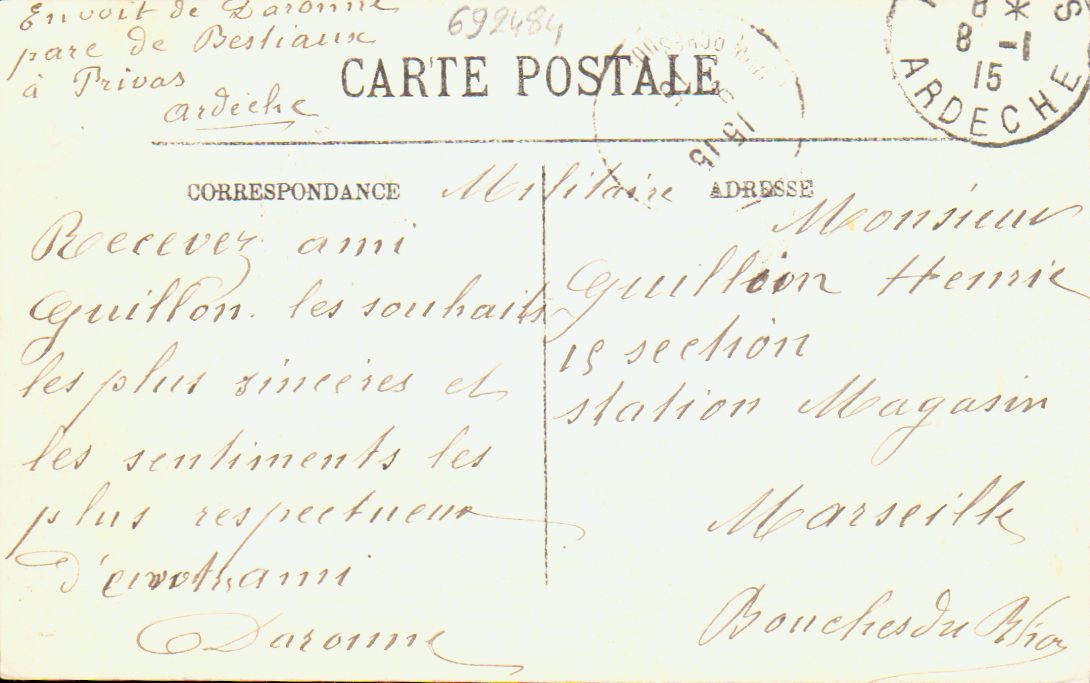 Envoit de Daronne
parc de Bestiaux
à Privas
ardèche
692484
CARTE POSTALE
8 *
8 -1
15
ARDECHE
15 15
CORRESPONDANCE
Militaire
ADRESSE
Recevez ami
Guillon. les souhaits
les plus sincères et
les sentiments les
plus respectueux
ami
Daronne
Monsieur
Guillion Henrie
15 section
station Magasin
Marseille
Bouches du Rhon